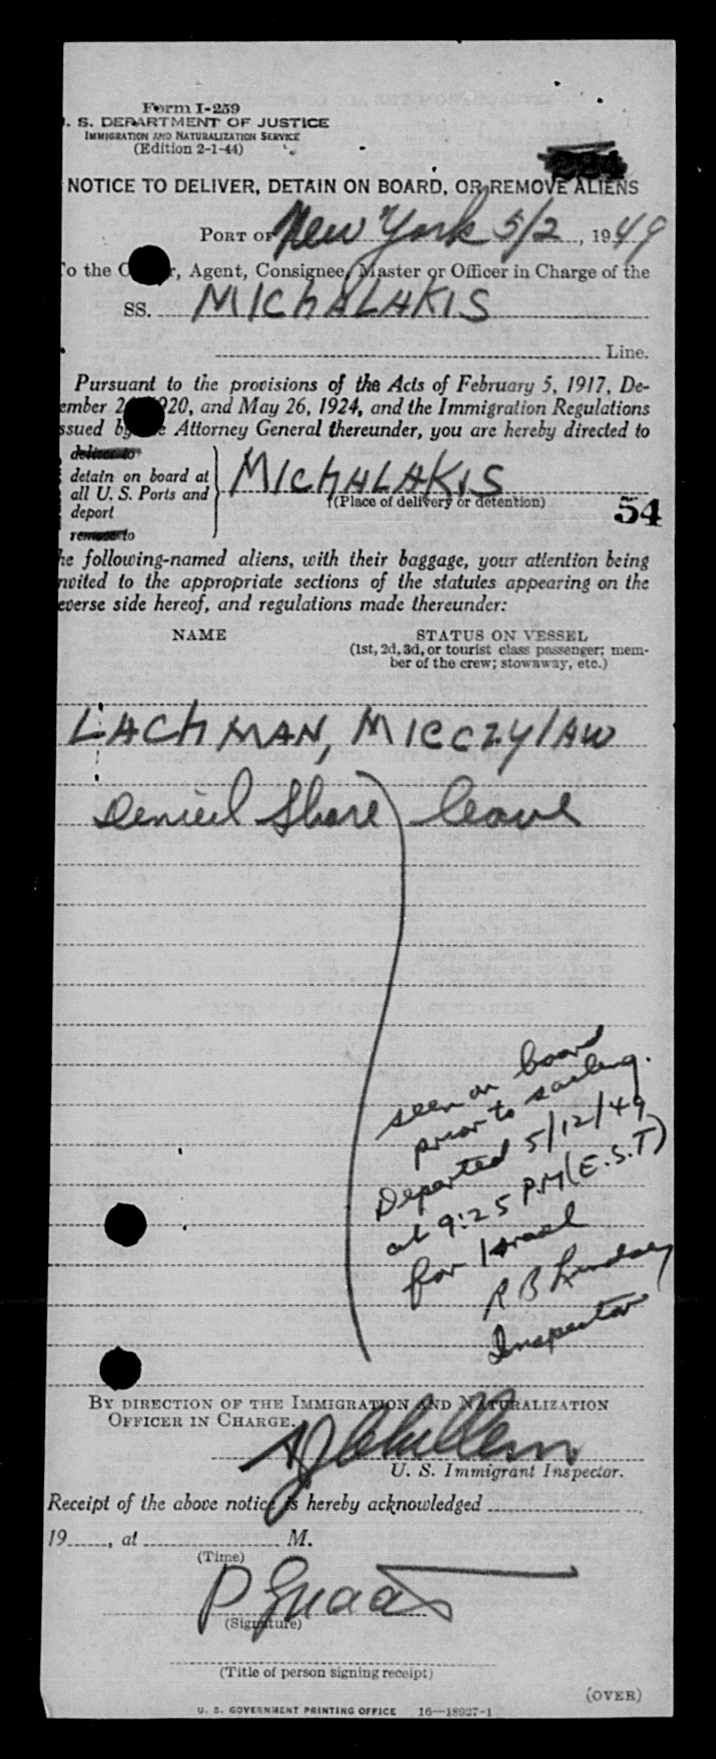 Form I-259
U. S. DEPARTMENT OF JUSTICE
IMMIGRATION AND NATURALIZATION SERVICE
(Edition 2-1-44)
NOTICE TO DELIVER, DETAIN ON BOARD, OR REMOVE ALIENS
PORT OF New York 5/2, 1949
To the r, Agent, Consignee, Master or Officer in Charge of the
SS. MIChALAKIS
Line.
Pursuant to the provisions of the Acts of February 5, 1917, De-
ember 2 20, and May 26, 1924, and the Immigration Regulations
ssued by e Attorney General thereunder, you are hereby directed to
deliver to
detain on board at
all U. S. Ports and
deport
remove to
MIChALAKIS
(Place of delivery or detention)
54
he following-named aliens, with their baggage, your attention being
nvited to the appropriate sections of the statutes appearing on the
everse side hereof, and regulations made thereunder:
NAME STATUS ON VESSEL
(1st, 2d, 3d, or tourist class passenger; mem-
ber of the crew; stowaway, etc.)
LAChMAN, MIECZYlAW
Denied Shore leave
seen on board
prior to sailing.
Departed 5/12/49
at 9:25 P.M (E.S.T)
for Israel
R B Lindsay
Inspector
BY DIRECTION OF THE IMMIGRATION AND NATURALIZATION
OFFICER IN CHARGE.
U. S. Immigrant Inspector.
Receipt of the above notice is hereby acknowledged
19, at M.
(Time)
(Signature)
(Title of person signing receipt)
(OVER)
U. S. GOVERNMENT PRINTING OFFICE 16—18927-1